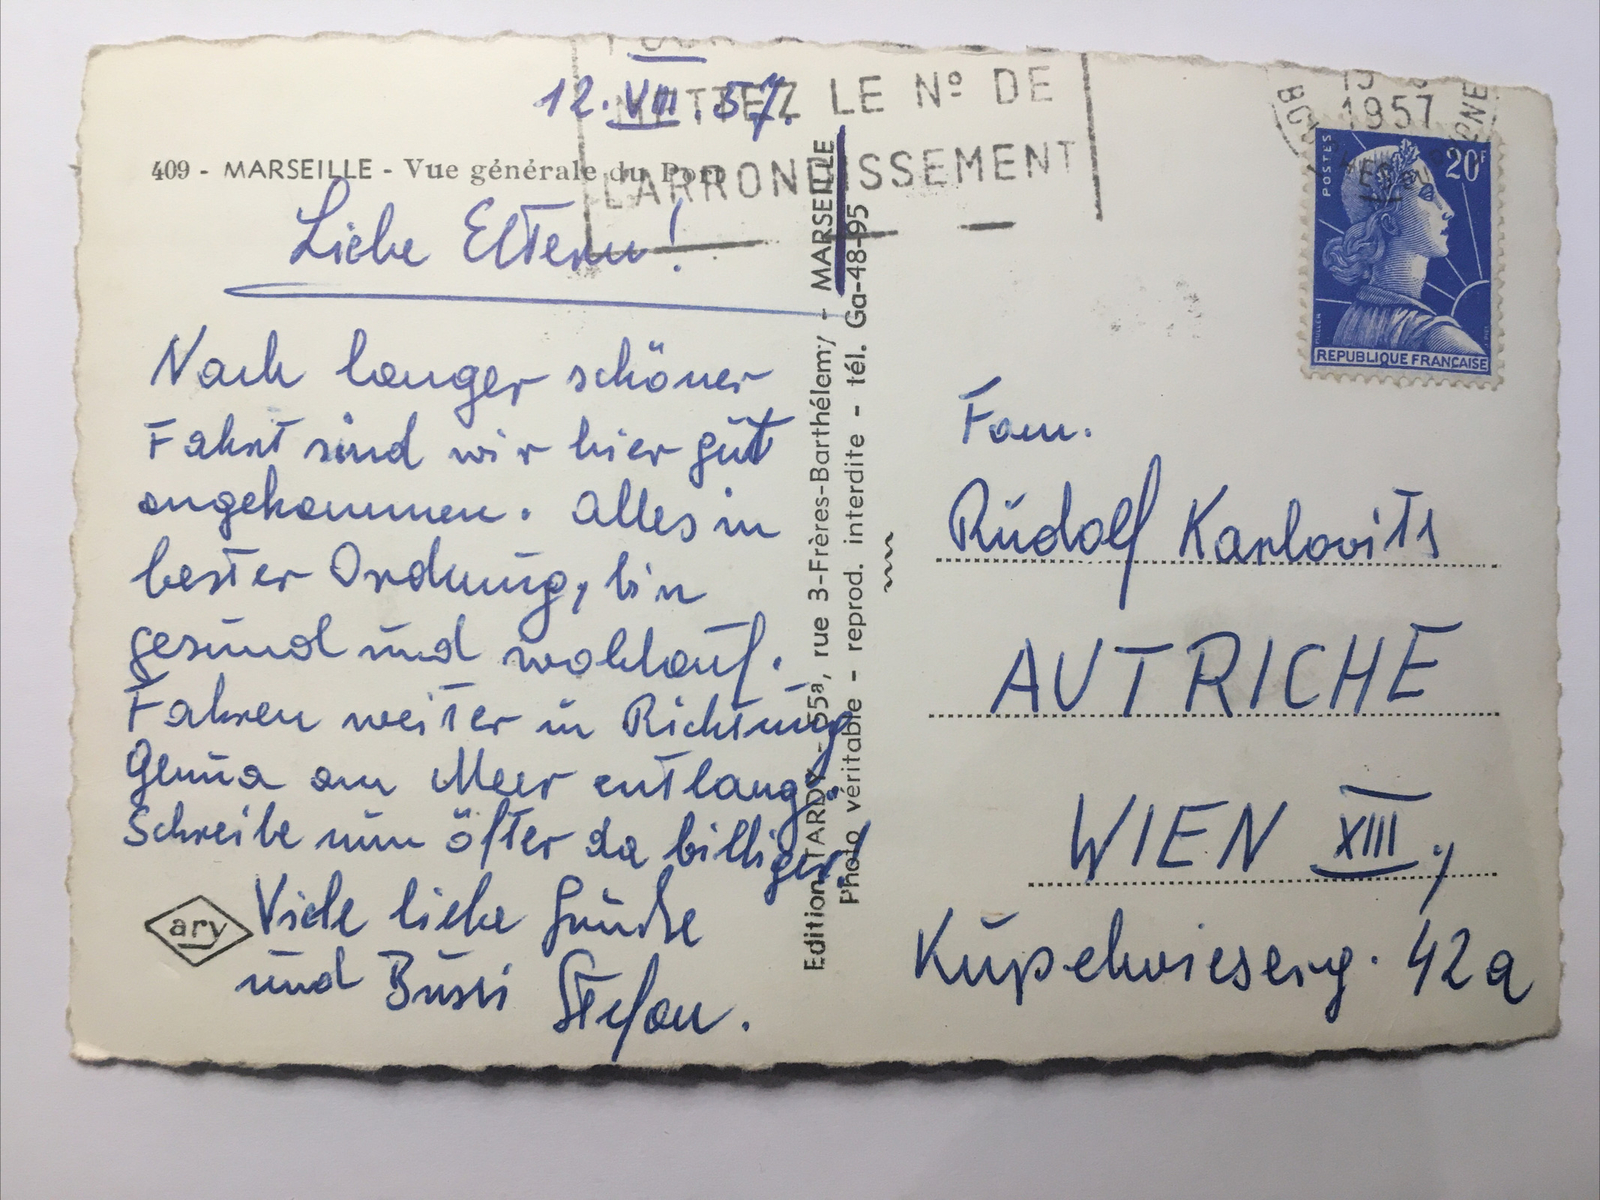 12.VIII.57.
METTEZ LE Nº DE
L'ARRONDISSEMENT
409 - MARSEILLE - Vue générale du Port
Liebe Eltern!
Nach langer schöner
Fahrt sind wir hier gut
angekommen. Alles in
bester Ordnung, bin
gesund und wohlauf.
Fahren weiter in Richtung
Genua am Meer entlang.
Schreibe nun öfter da billiger!
Viele liebe Grüße
und Bussi Stefan.
ary
Edition TARDY - 55ª, rue 3-Frères-Barthélemy - MARSEILLE
Photo véritable - reprod. interdite - tél. Ga-48-95
1957
POSTES
20F
REPUBLIQUE FRANÇAISE
Fam.
Rudolf Karlovits
AUTRICHE
WIEN XIII,
Kupelwieserg. 42a